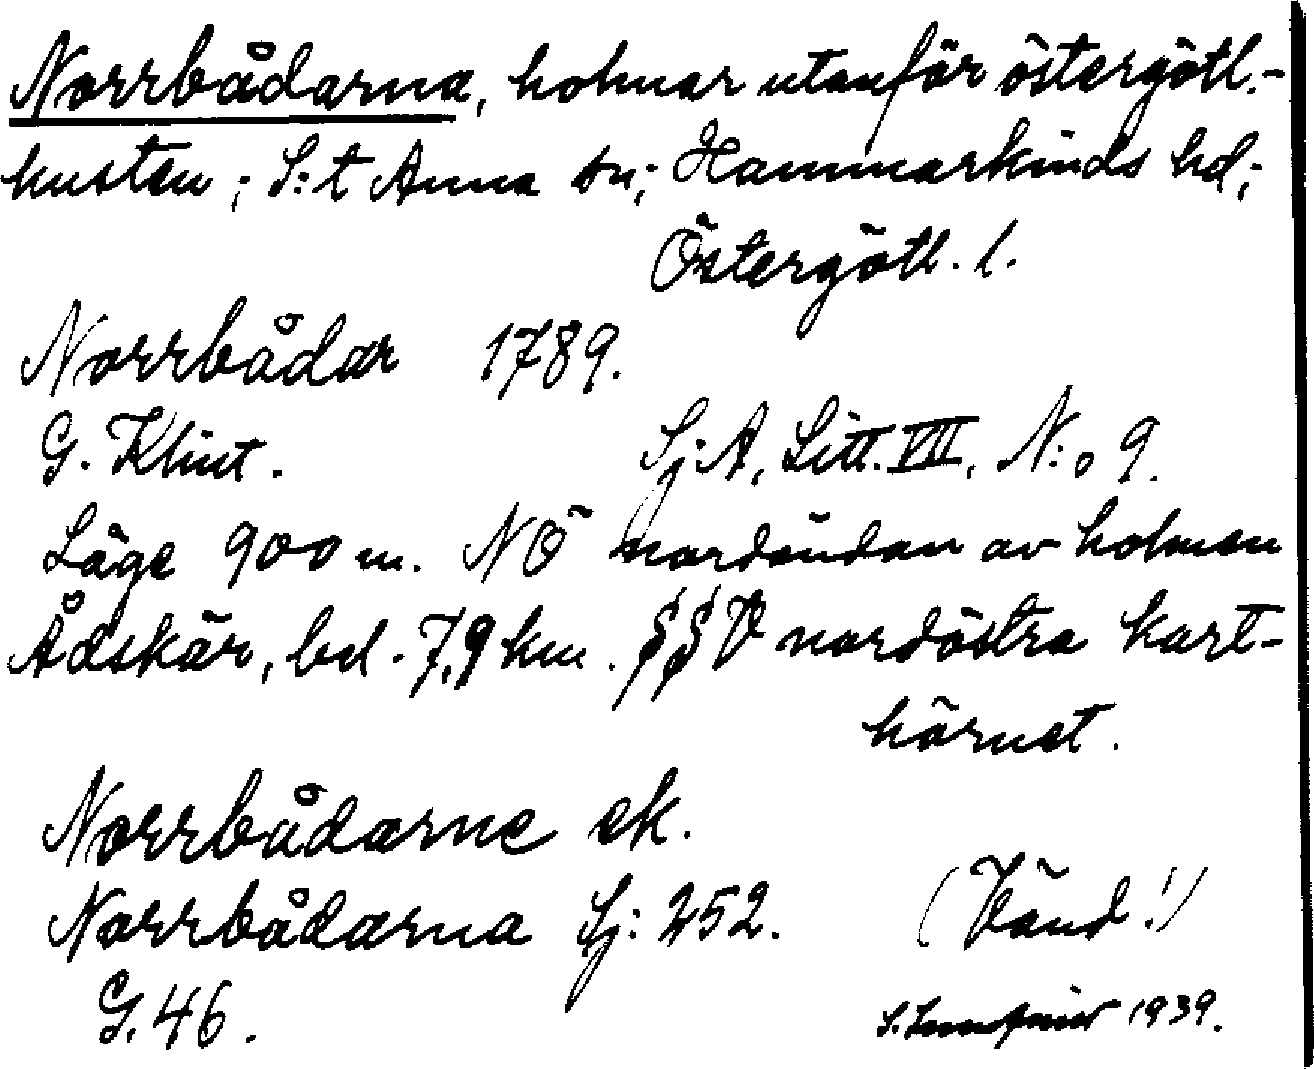 Norrbådarna, holmar utanför östergötl.-
kusten; S:t Anna sn; Hammarkinds hd;
Östergötl. l.
Norrbådar 1789.
G. Klint. Sj:A, Litt. VII, N:o 9.
Läge 900 m. NÖ nordändan av holmen
Ådskär, bd. 7,9 km. §§ V nordöstra kart-
hörnet.
Norrbådarne ek.
Norrbådarna Sj: 252. (Vänd!)
G. 46. 1939.